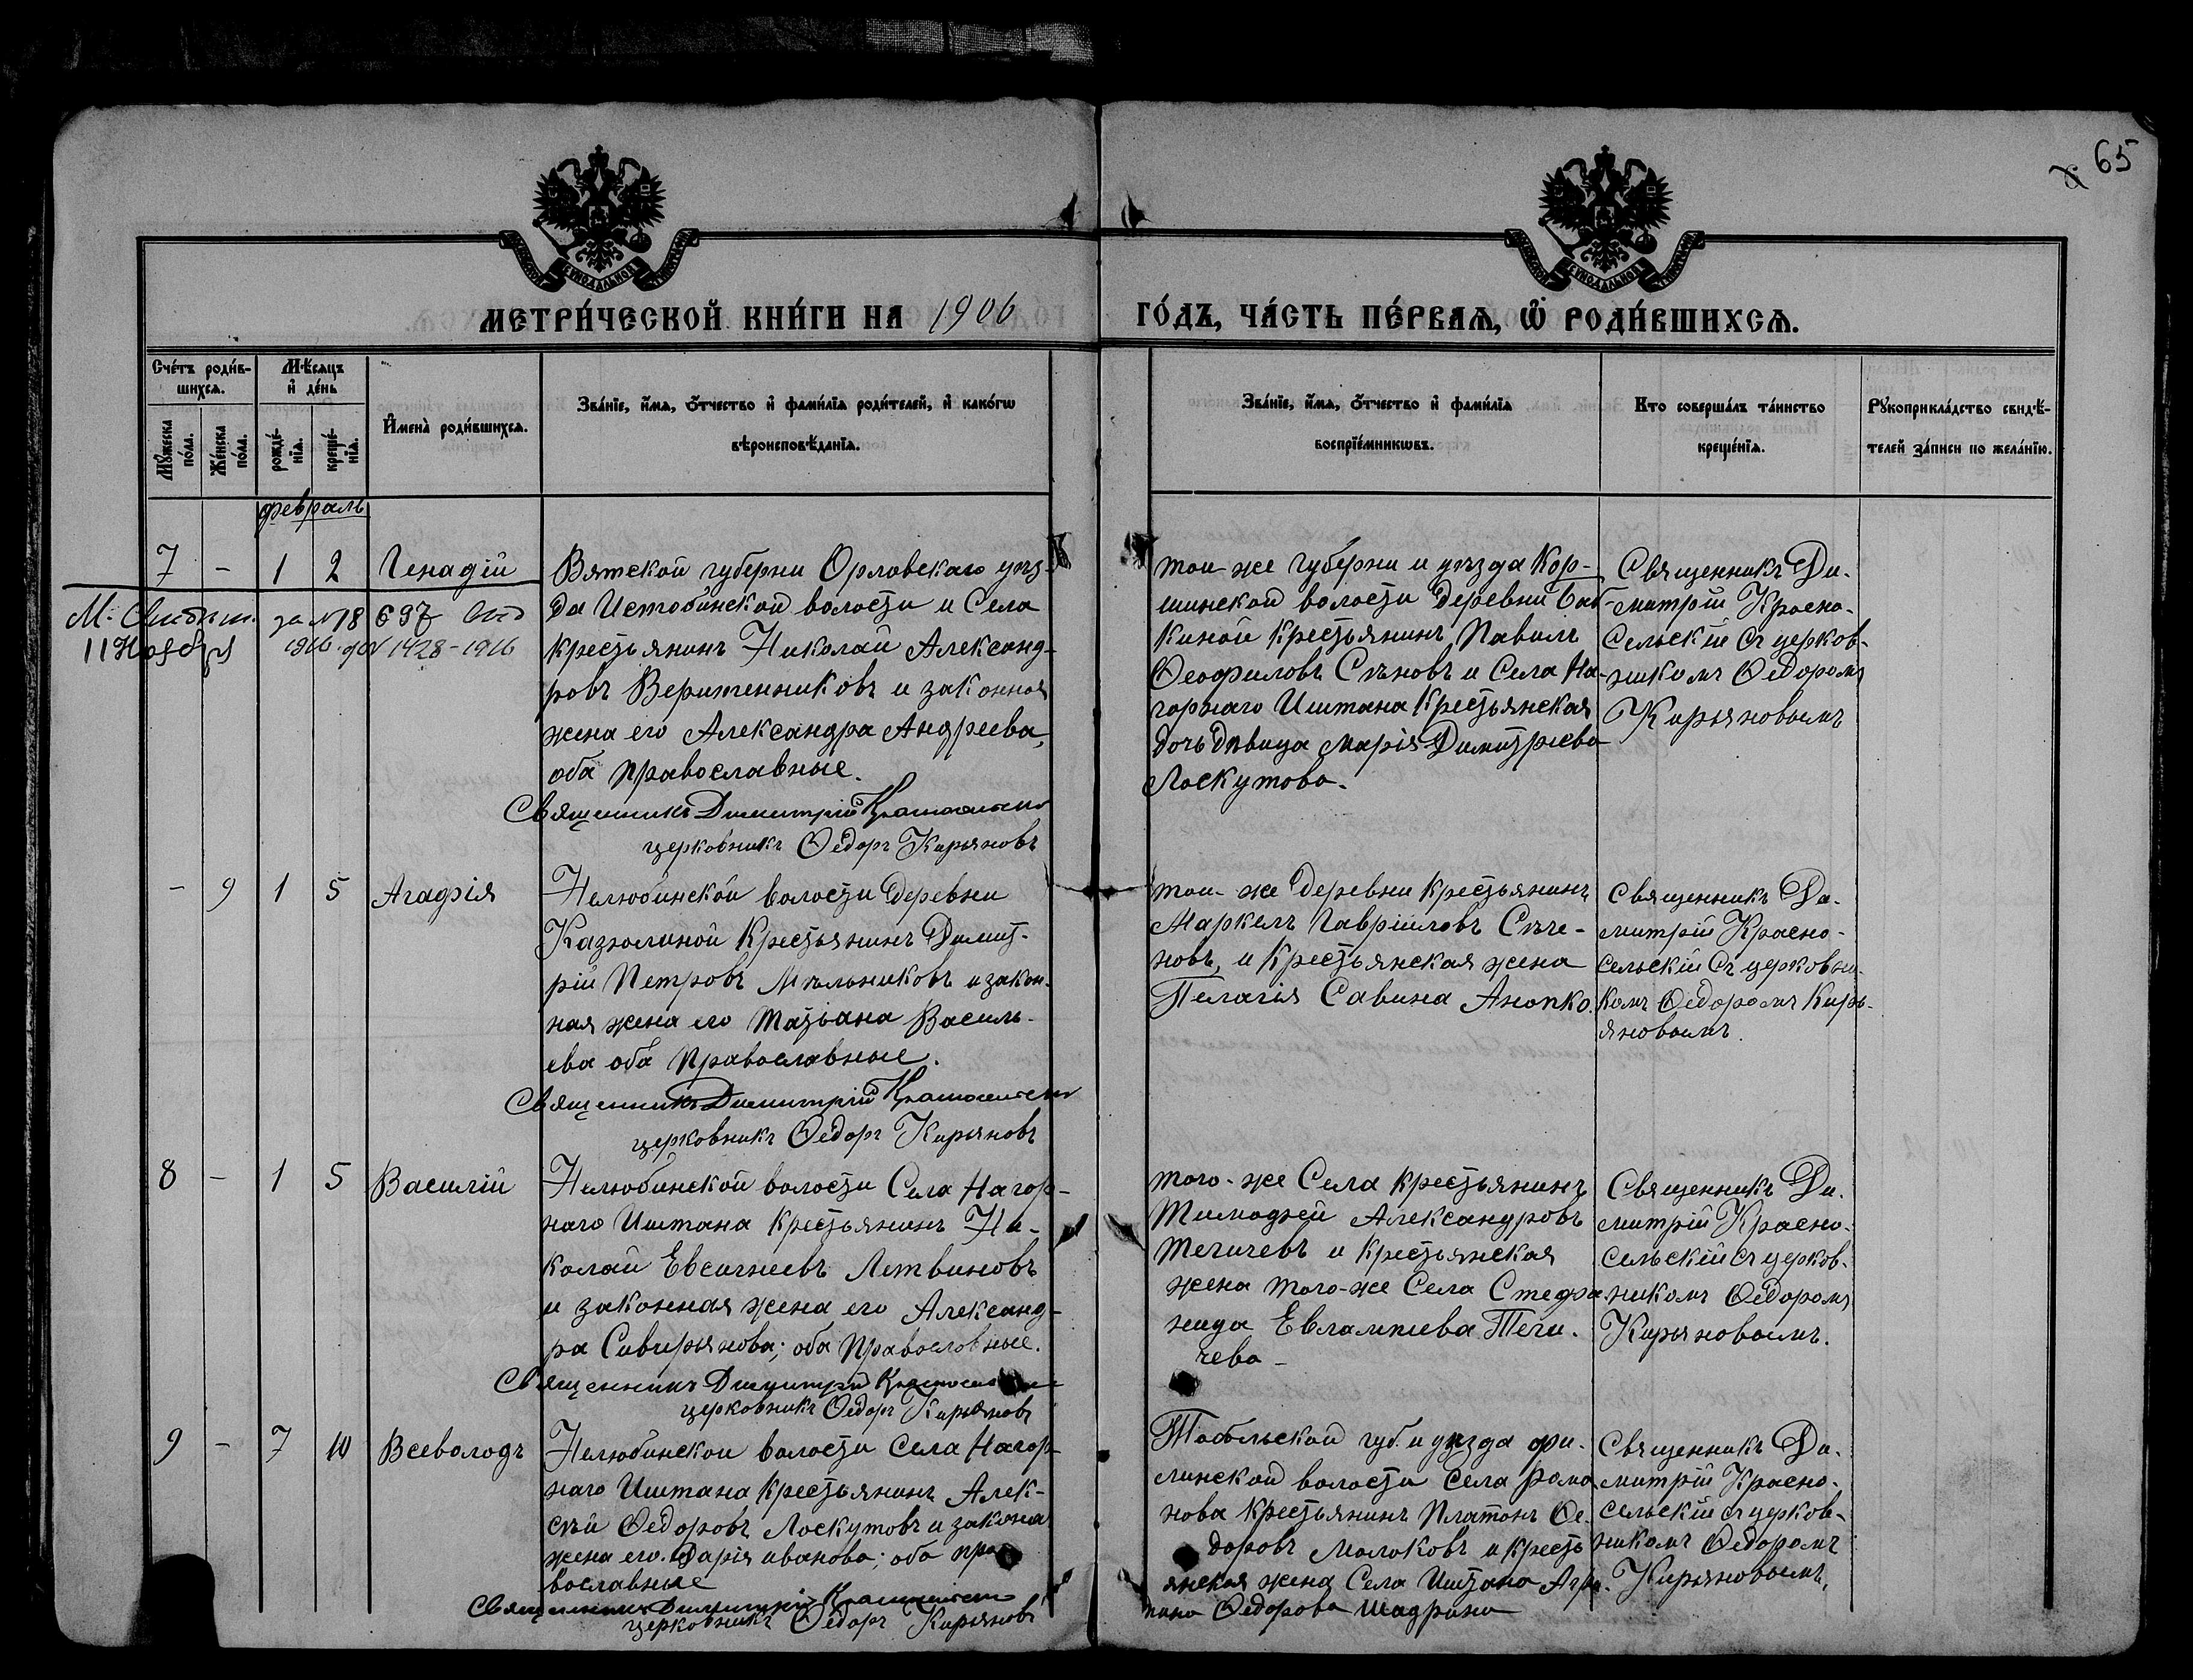 65
МЕТРИ́ЧЕСКОЙ КНИ́ГИ НА 1906
ГО́ДЪ, ЧА́СТЬ ПЕ́РВАѦ, Ѿ РОДИ́ВШИХСѦ.
Сче́тъ роди́в-
шихсѧ.
Мꙋ́жеска по́ла.
Же́нска по́ла.
Мѣ́сѧцъ
и҆ де́нь
рожде́-
нїѧ.
креще́-
нїѧ.
И҆мена̀ роди́вшихсѧ.
Зва́нїе, и҆́мѧ, ѻ҆́тчество и҆ фами́лїѧ роди́телей, и҆ како́гѡ
вѣроисповѣ́данїѧ.
Зва́нїе, и҆́мѧ, ѻ҆́тчество и҆ фами́лїѧ
воспрїе́мникѡвъ.
Кто соверша́лъ та́инство
креще́нїѧ.
Рꙋкоприкла́дство свидѣ́-
телей за́писи по жела́нїю.
февраль
7 - 1 2 Генадій
Вятской губерни Орловскаго уѣз-
да Истобинской волости и Села
крестьянинъ Николай Александ-
ровъ Веритенниковъ и законная
жена его Александра Андреева,
оба православные.
Священникъ Димитрій Красносельскій
церковникъ Ѳедоръ Кирьяновъ
за №18697
11 Ноября 1916 1428-1916
той же губерни и уѣзда Кор-
шинской волости деревни Баб-
киной крестьянинъ Павилъ
Ѳеофиловъ Сѣновъ и Села На-
горнаго Иштана крестьянская
дочь дѣвица Марія Димитріева
Лоскутова.
Священникъ Ди-
митрій Красно-
сельскій съ церков-
никомъ Ѳедоромъ
Кирьяновымъ
- 9 1 5 Агафія
Нелюбинской волости деревни
Казюлиной крестьянинъ Димит-
рій Петровъ Мѣльниковъ и закон-
ная жена его Татьана Василь-
ева оба православные.
Священникъ Димитрій Красносельскій
церковникъ Ѳедоръ Кирьяновъ
той-же деревни крестьянинъ
Маркелъ Гавріиловъ Сѣче-
новъ, и крестьянская жена
Пелагія Савина Анопко.
Священникъ Ди-
митрій Красно-
сельскій съ церковни-
комъ Ѳедоромъ Кирь-
яновымъ.
8 - 1 5 Василій
Нелюбинской волости Села Нагор-
наго Иштана крестьянинъ Ни-
колай Евсигнеевъ Летвиновъ
и законная жена его Александ-
ра Сивирьянова; оба православные.
Священникъ Димитрій
церковникъ Ѳедоръ Кирьяновъ
того-же Села крестьянинъ
Тимофей Александровъ
Тегичевъ и крестьянская
жена того-же Села Стефа-
нида Евлампиева Теги-
чева -
Священникъ Ди-
митрій Красно-
сельскій съ церков-
никомъ Ѳедоромъ
Кирьяновымъ.
9 - 7 10 Всеволодъ
Нелюбинской волости Села Нагор-
наго Иштана крестьянинъ Алек-
сѣй Ѳедоровъ Лоскутовъ и законна
жена его Дарія иванова; оба пра
вославные
Священникъ Димитрій Красносельскій
церковникъ Ѳедоръ Кирьяновъ
Тобольской губ. и уѣзда фи-
линской волости Села рома
нова крестьянинъ Платонъ Ѳе-
доровъ Молоковъ и кресть
янская жена Села Иштана Агри-
пина Ѳедорова Шадрина
Священникъ Ди-
митрій Красно-
сельскій съ церков-
никомъ Ѳедоромъ
Кирьяновымъ,